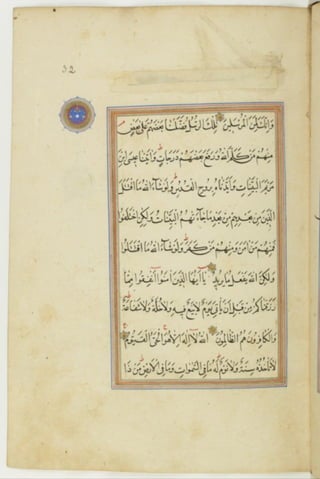 32
وَإِنَّكَ لَمِنَ الْمُرْسَلِينَ تِلْكَ الرُّسُلُ فَضَّلْنَا بَعْضَهُمْ عَلَى بَعْضٍ
مِنْهُمْ مَنْ كَلَّمَ اللَّهُ وَرَفَعَ بَعْضَهُمْ دَرَجَاتٍ وَآتَيْنَا عِيسَى ابْنَ
مَرْيَمَ الْبَيِّنَاتِ وَأَيَّدْنَاهُ بِرُوحِ الْقُدُسِ وَلَوْ شَاءَ اللَّهُ مَا اقْتَتَلَ
الَّذِينَ مِنْ بَعْدِهِمْ مِنْ بَعْدِ مَا جَاءَتْهُمُ الْبَيِّنَاتُ وَلَكِنِ اخْتَلَفُوا
فَمِنْهُمْ مَنْ آمَنَ وَمِنْهُمْ مَنْ كَفَرَ وَلَوْ شَاءَ اللَّهُ مَا اقْتَتَلُوا
وَلَكِنَّ اللَّهَ يَفْعَلُ مَا يُرِيدُ يَا أَيُّهَا الَّذِينَ آمَنُوا أَنْفِقُوا مِمَّا
رَزَقْنَاكُمْ مِنْ قَبْلِ أَنْ يَأْتِيَ يَوْمٌ لَا بَيْعٌ فِيهِ وَلَا خُلَّةٌ وَلَا شَفَاعَةٌ
وَالْكَافِرُونَ هُمُ الظَّالِمُونَ اللَّهُ لَا إِلَهَ إِلَّا هُوَ الْحَيُّ الْقَيُّومُ
لَا تَأْخُذُهُ سِنَةٌ وَلَا نَوْمٌ لَهُ مَا فِي السَّمَوَاتِ وَمَا فِي الْأَرْضِ مَنْ ذَا